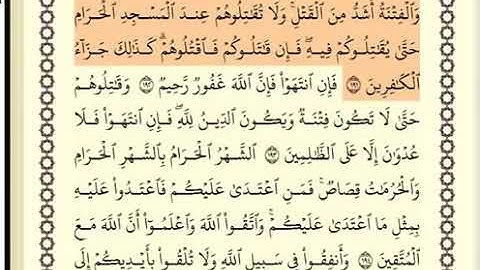 وَٱلْفِتْنَةُ أَشَدُّ مِنَ ٱلْقَتْلِ ۚ وَلَا تُقَٰتِلُوهُمْ عِندَ ٱلْمَسْجِدِ ٱلْحَرَامِ
حَتَّىٰ يُقَٰتِلُوكُمْ فِيهِ ۖ فَإِن قَٰتَلُوكُمْ فَٱقْتُلُوهُمْ ۗ كَذَٰلِكَ جَزَآءُ
ٱلْكَٰفِرِينَ ١٩١ فَإِنِ ٱنتَهَوْا۟ فَإِنَّ ٱللَّهَ غَفُورٌ رَّحِيمٌ ١٩٢ وَقَٰتِلُوهُمْ
حَتَّىٰ لَا تَكُونَ فِتْنَةٌ وَيَكُونَ ٱلدِّينُ لِلَّهِ ۖ فَإِنِ ٱنتَهَوْا۟ فَلَا
عُدْوَٰنَ إِلَّا عَلَى ٱلظَّٰلِمِينَ ١٩٣ ٱلشَّهْرُ ٱلْحَرَامُ بِٱلشَّهْرِ ٱلْحَرَامِ
وَٱلْحُرُمَٰتُ قِصَاصٌ ۚ فَمَنِ ٱعْتَدَىٰ عَلَيْكُمْ فَٱعْتَدُوا۟ عَلَيْهِ
بِمِثْلِ مَا ٱعْتَدَىٰ عَلَيْكُمْ ۚ وَٱتَّقُوا۟ ٱللَّهَ وَٱعْلَمُوٓا۟ أَنَّ ٱللَّهَ مَعَ
ٱلْمُتَّقِينَ ١٩٤ وَأَنفِقُوا۟ فِى سَبِيلِ ٱللَّهِ وَلَا تُلْقُوا۟ بِأَيْدِيكُمْ إِلَى